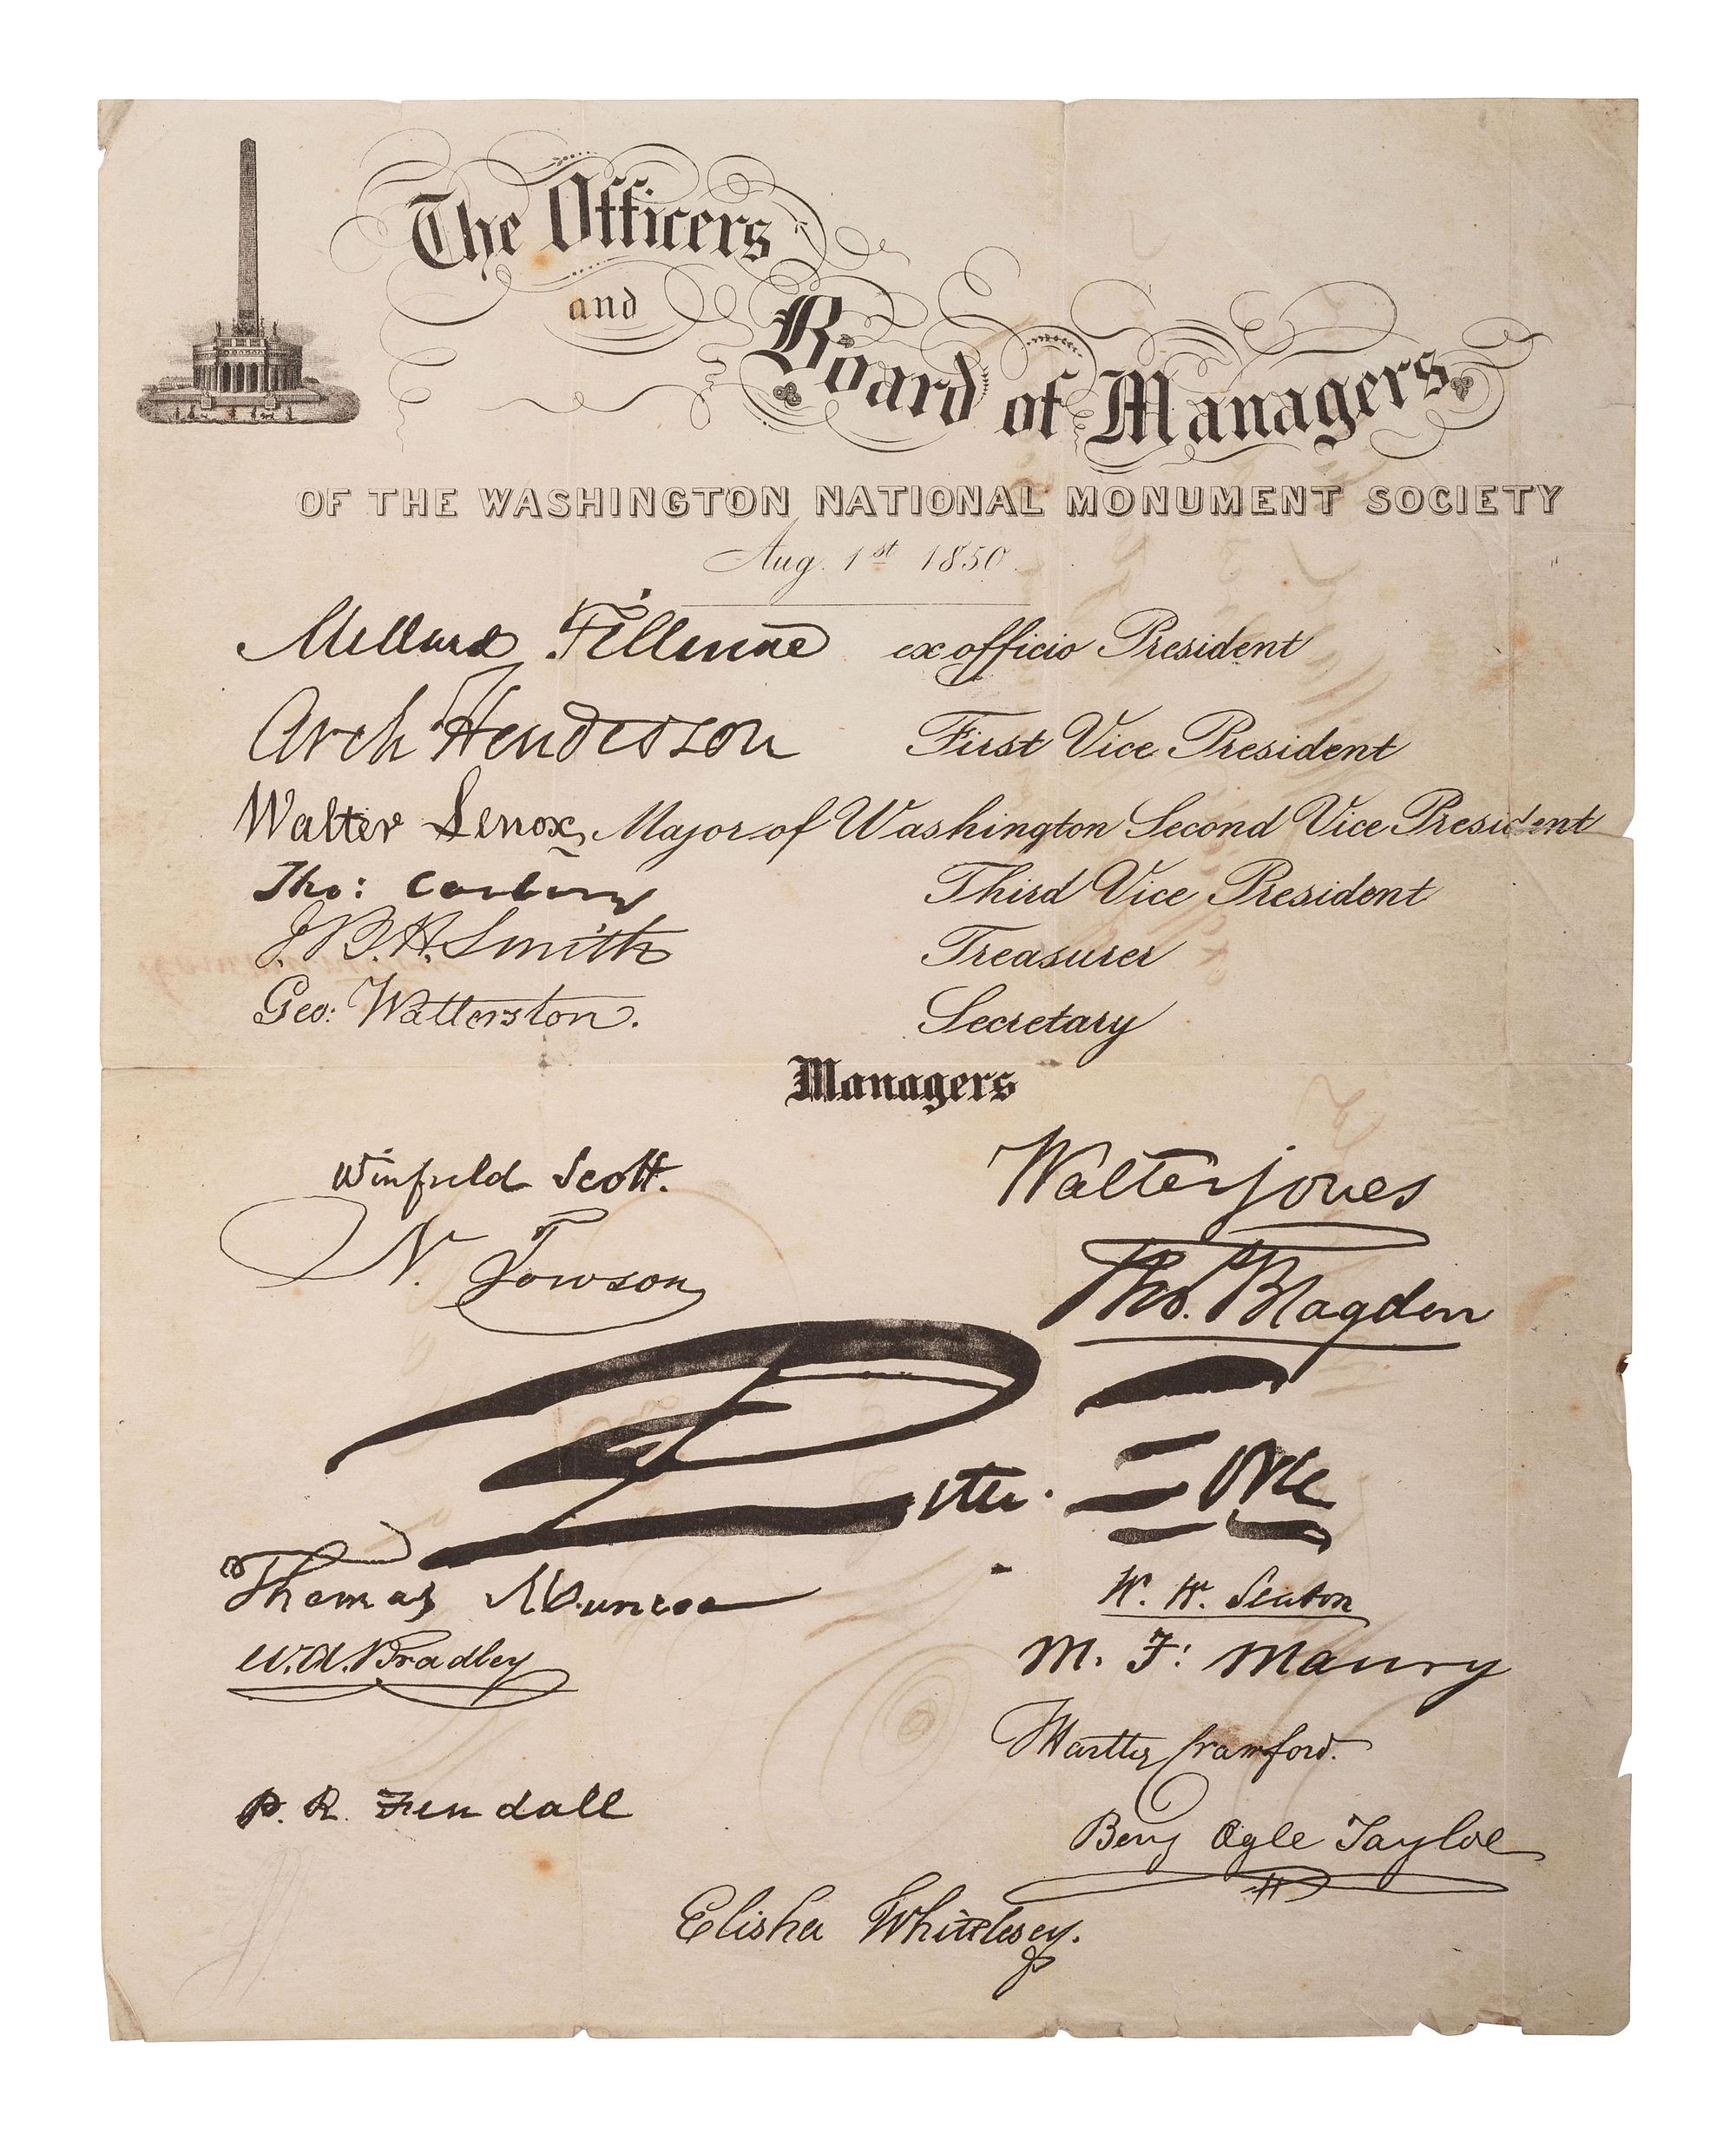 The Officers
and
Board of Managers
OF THE WASHINGTON NATIONAL MONUMENT SOCIETY
Aug. 1st 1850.
Millard Fillmore ex officio President
Arch Henderson First Vice President
Walter Lenox, Mayor of Washington Second Vice President
Tho: Carbery Third Vice President
J. B. H. Smith Treasurer
Geo: Watterston. Secretary
Managers
Winfield Scott.
N. Towson
Thomas Munroe
W. A. Bradley
P. R. Fendall
Walter Jones
Tho. Blagden
W. W. Seaton
M. F. Maury
Benj Ogle Tayloe
Elisha Whittlesey.